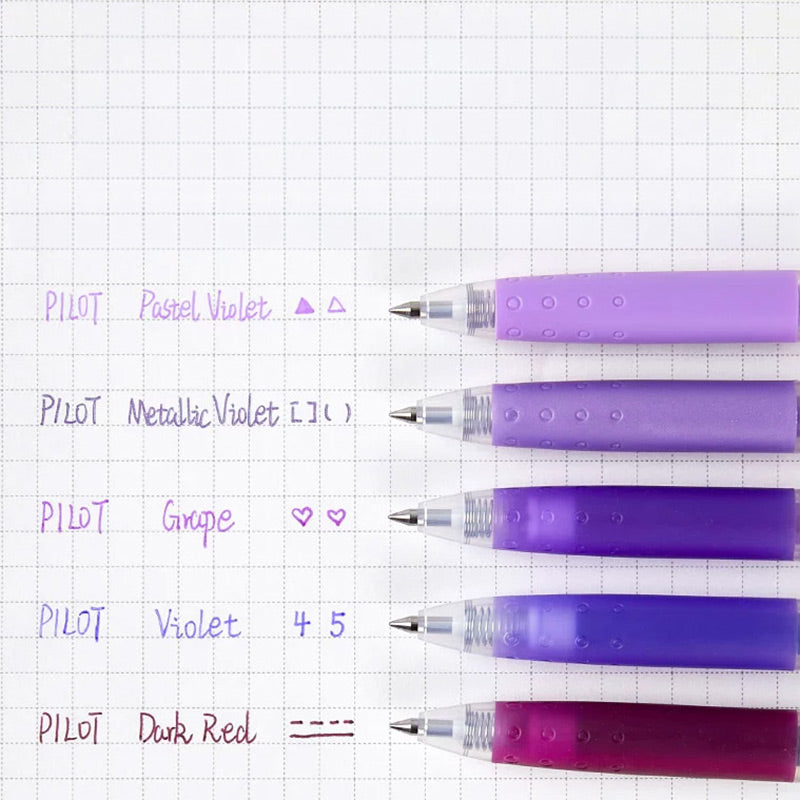 PILOT Pastel Violet
PILOT Metallic Violet [ ] ( )
PILOT Grape
PILOT Violet 4 5
PILOT Dark Red